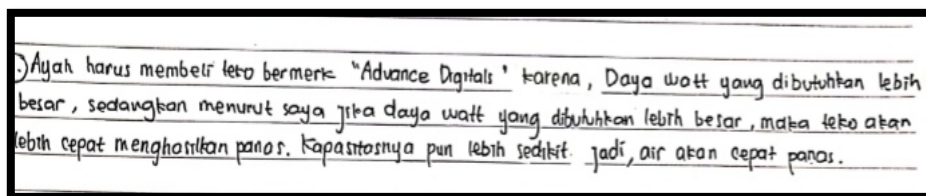 .) Ayah harus membeli teko bermerk "Advance Digitals" karena, Daya watt yang dibutuhkan lebih
besar, sedangkan menurut saya jika daya watt yang dibutuhkan lebih besar, maka teko akan
lebih cepat menghasilkan panas. Kapasitasnya pun lebih sedikit. Jadi, air akan cepat panas.